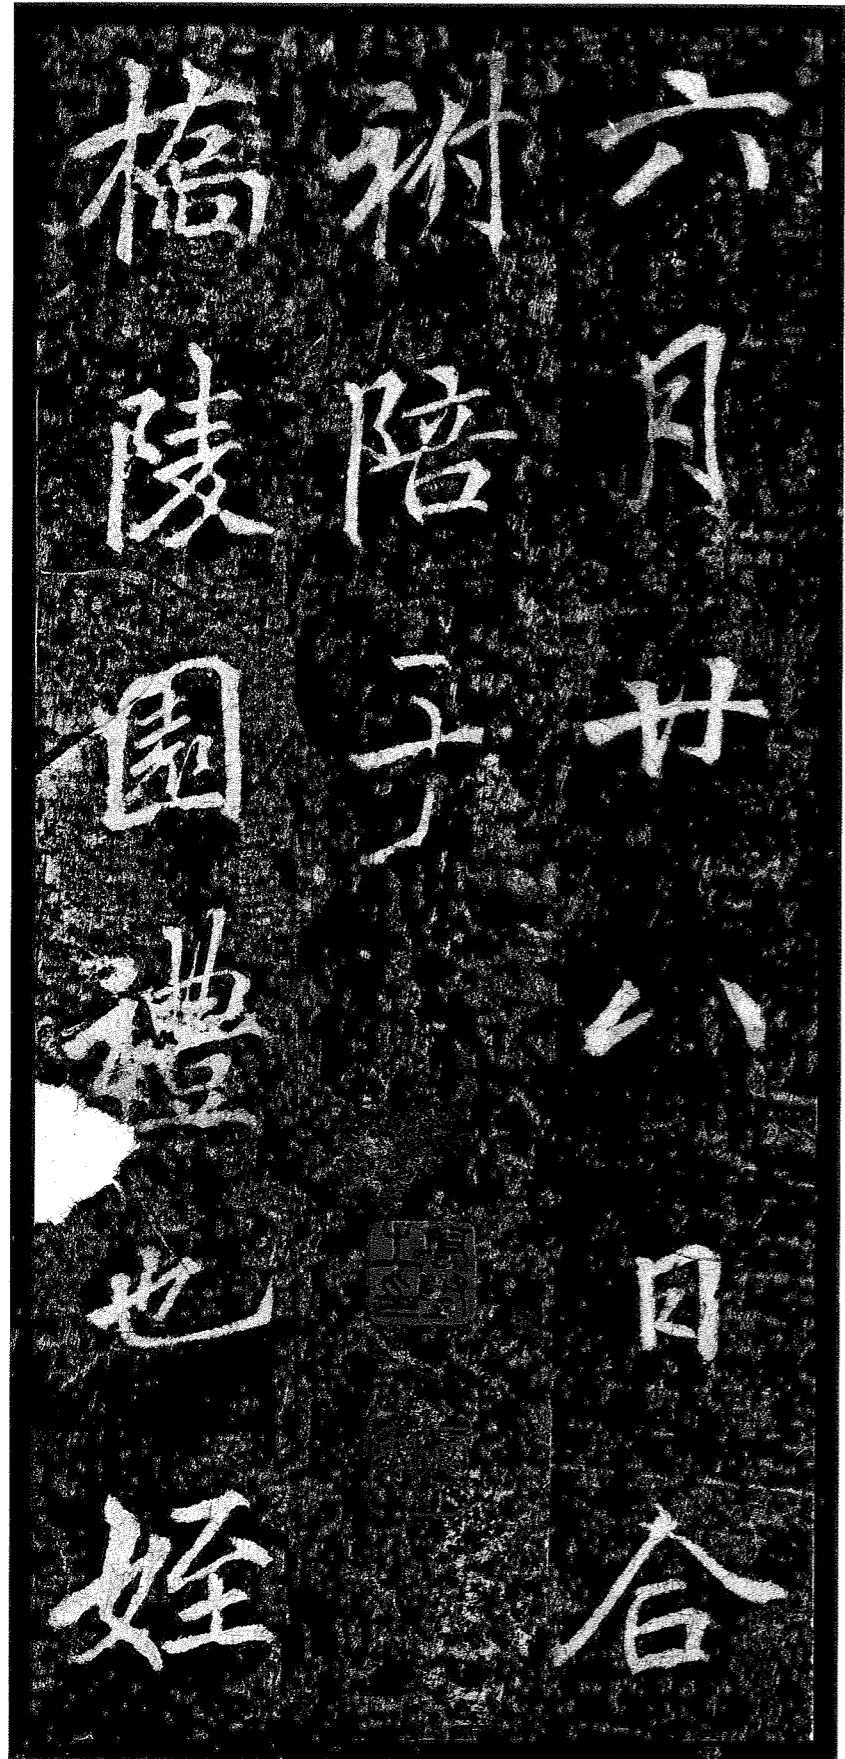 六月廿八日合
祔陪于
橋陵園禮也姪